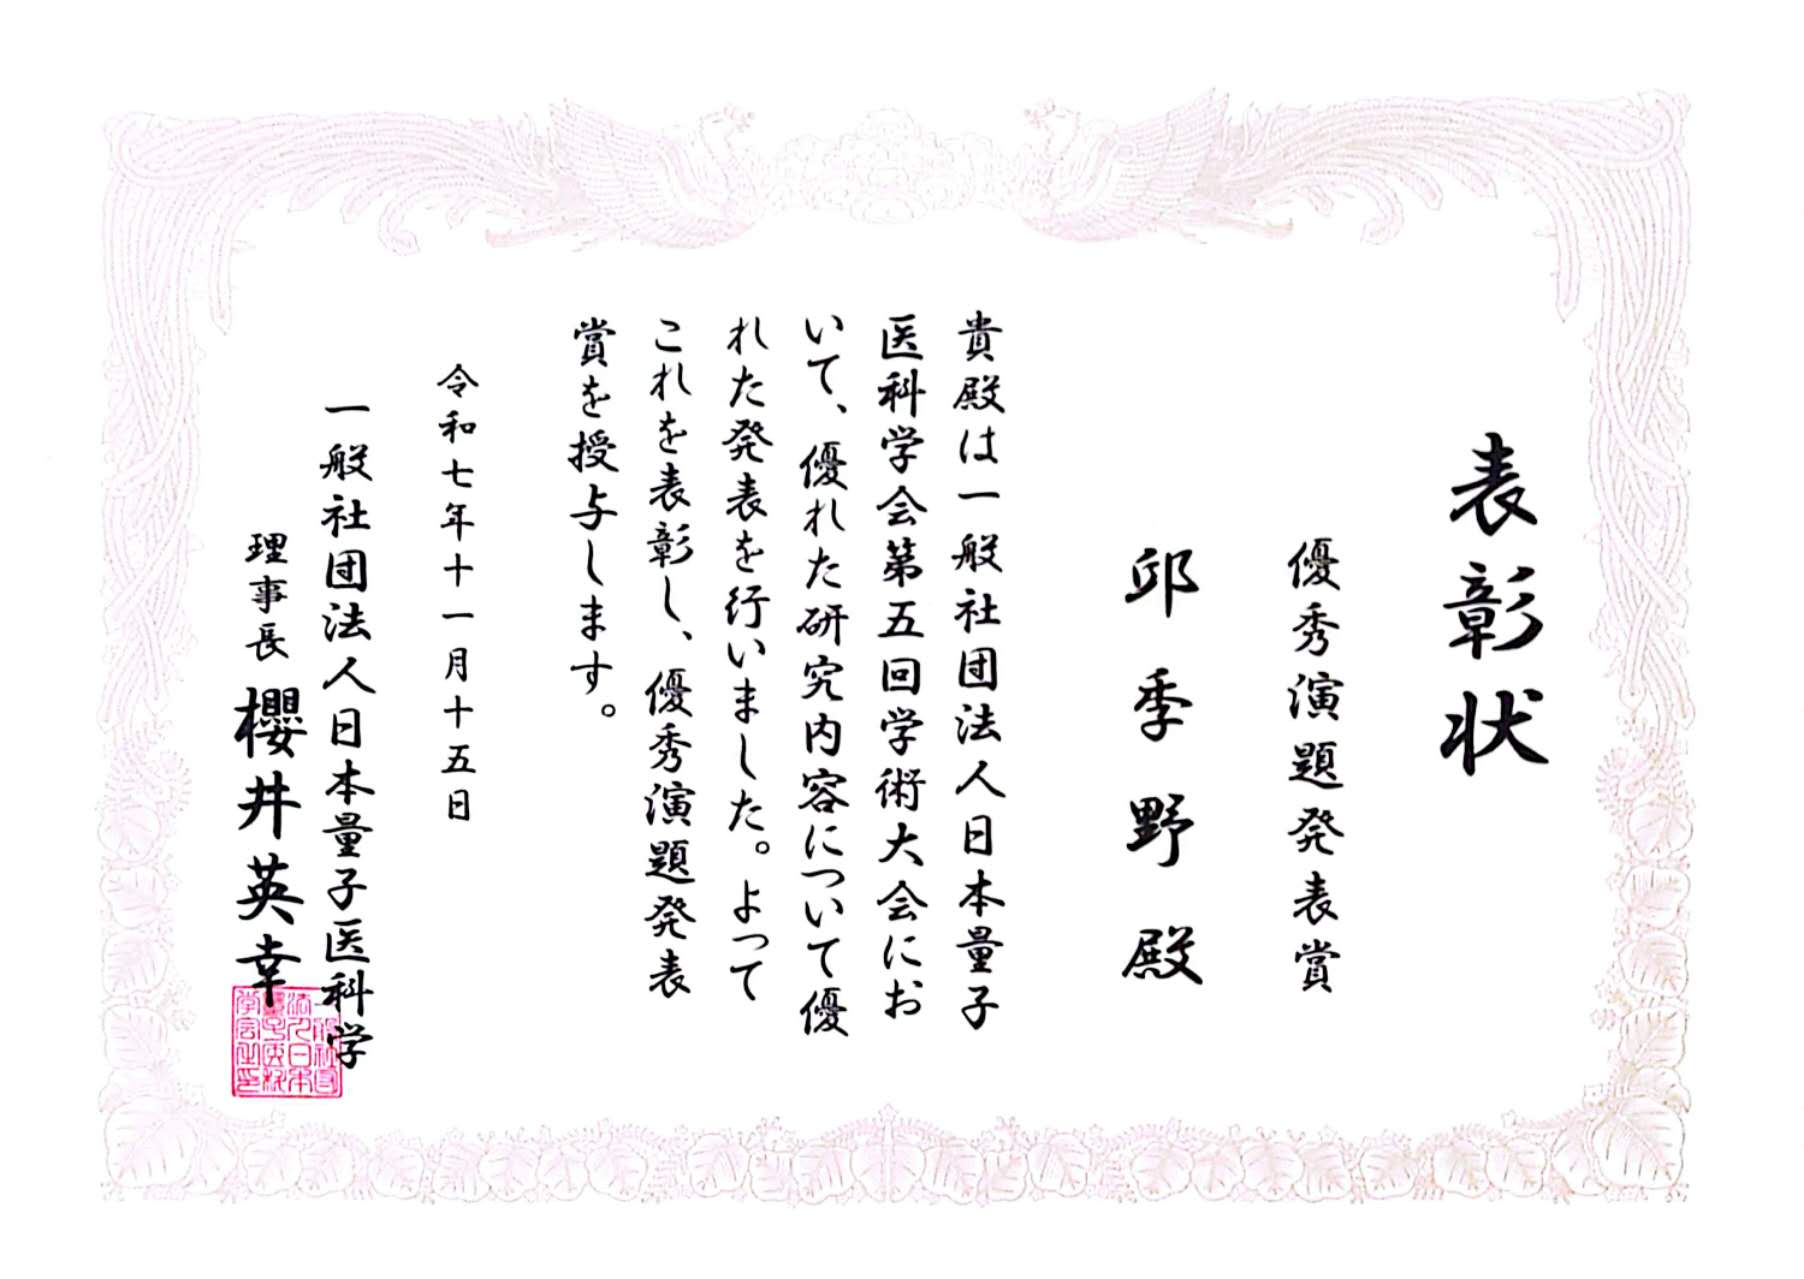 表彰状
優秀演題発表賞
邱季野殿
貴殿は一般社団法人日本量子
医科学会第五回学術大会にお
いて、優れた研究内容について優
れた発表を行いました。よって
これを表彰し、優秀演題発表
賞を授与します。
令和七年十一月十五日
一般社団法人日本量子医科学
理事長 櫻井英幸